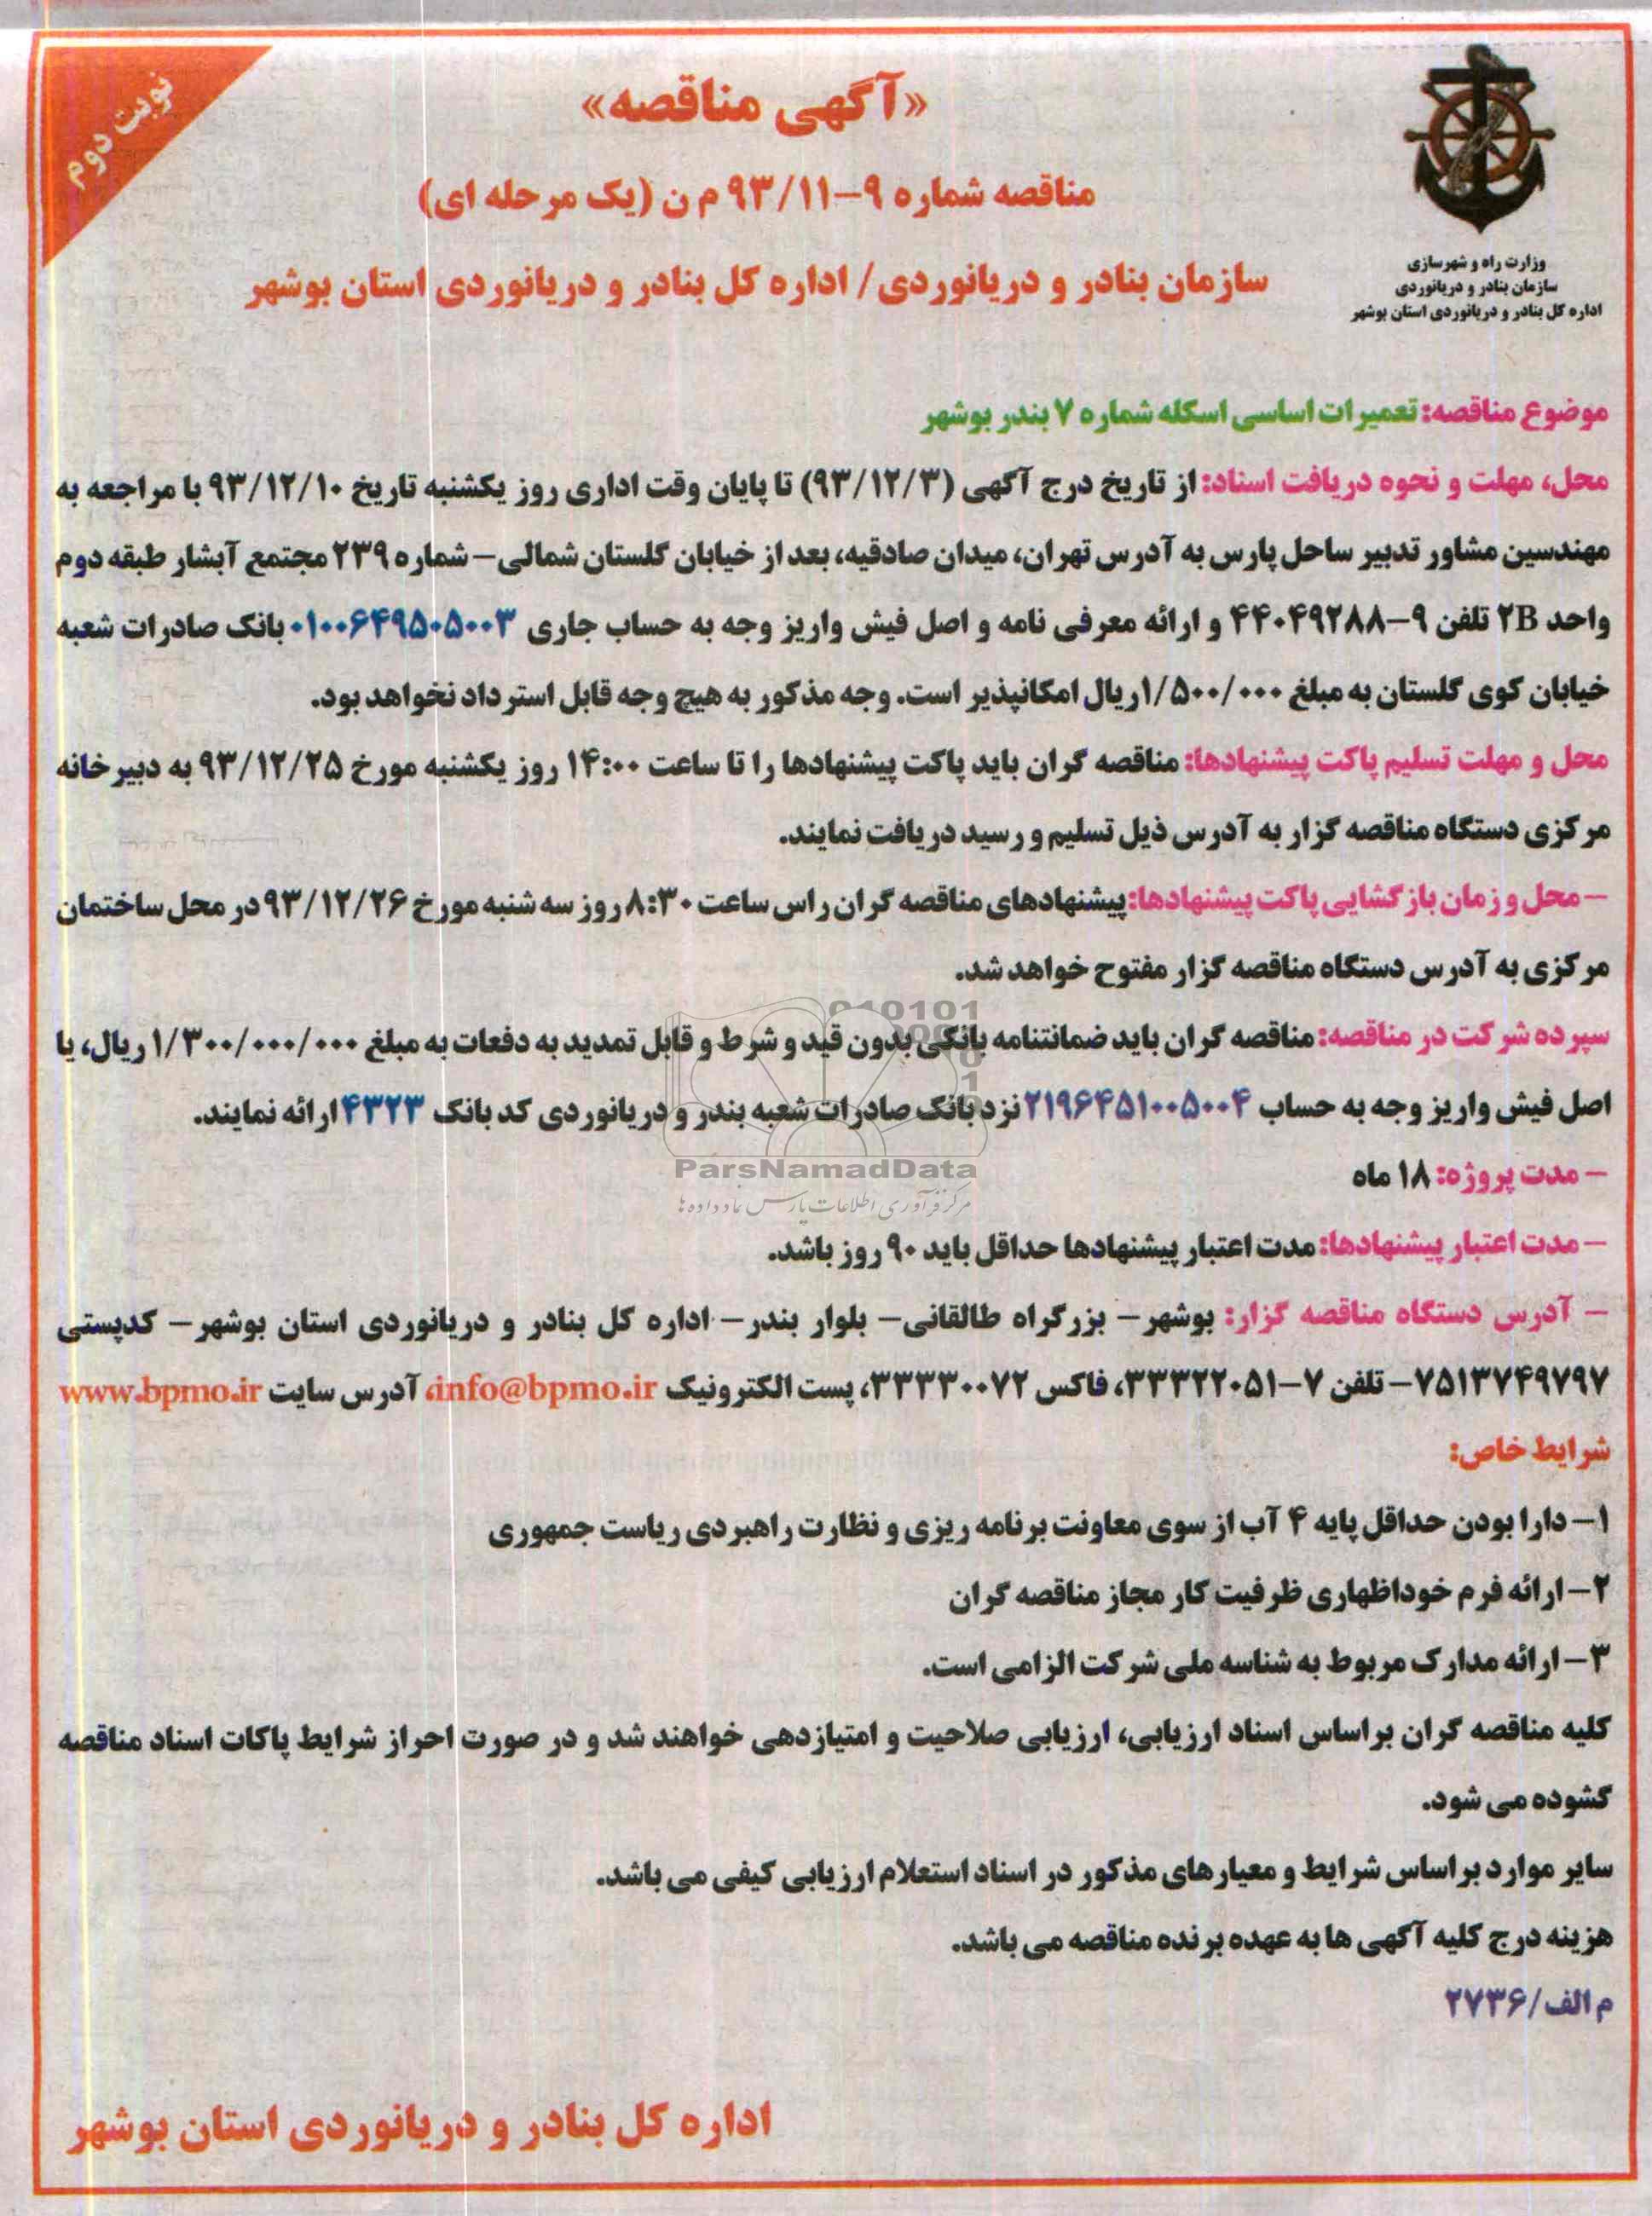 نوبت دوم
«آگهی مناقصه»
مناقصه شماره ۹-۹۳/۱۱ م ن (یک مرحله ای)
سازمان بنادر و دریانوردی/ اداره کل بنادر و دریانوردی استان بوشهر
وزارت راه و شهرسازی
سازمان بنادر و دریانوردی
اداره کل بنادر و دریانوردی استان بوشهر
موضوع مناقصه: تعمیرات اساسی اسکله شماره ۷ بندر بوشهر
محل، مهلت و نحوه دریافت اسناد: از تاریخ درج آگهی (۹۳/۱۲/۳) تا پایان وقت اداری روز یکشنبه تاریخ ۹۳/۱۲/۱۰ با مراجعه به
مهندسین مشاور تدبیر ساحل پارس به آدرس تهران، میدان صادقیه، بعد از خیابان گلستان شمالی- شماره ۲۳۹ مجتمع آبشار طبقه دوم
واحد ۲B تلفن ۹-۴۴۰۴۹۲۸۸ و ارائه معرفی نامه و اصل فیش واریز وجه به حساب جاری ۰۱۰۰۶۴۹۵۰۵۰۰۳ بانک صادرات شعبه
خیابان کوی گلستان به مبلغ ۱/۵۰۰/۰۰۰ریال امکانپذیر است. وجه مذکور به هیچ وجه قابل استرداد نخواهد بود.
محل و مهلت تسلیم پاکت پیشنهادها: مناقصه گران باید پاکت پیشنهادها را تا ساعت ۱۴:۰۰ روز یکشنبه مورخ ۹۳/۱۲/۲۵ به دبیرخانه
مرکزی دستگاه مناقصه گزار به آدرس ذیل تسلیم و رسید دریافت نمایند.
- محل و زمان بازگشایی پاکت پیشنهادها: پیشنهادهای مناقصه گران راس ساعت ۸:۳۰ روز سه شنبه مورخ ۹۳/۱۲/۲۶ در محل ساختمان
مرکزی به آدرس دستگاه مناقصه گزار مفتوح خواهد شد.
سپرده شرکت در مناقصه: مناقصه گران باید ضمانتنامه بانکی بدون قید و شرط و قابل تمدید به دفعات به مبلغ ۱/۳۰۰/۰۰۰/۰۰۰ ریال، یا
اصل فیش واریز وجه به حساب ۲۱۹۶۴۵۱۰۰۵۰۰۴ نزد بانک صادرات شعبه بندر و دریانوردی کد بانک ۴۳۲۳ ارائه نمایند.
ParsNamadData
مرکز فرآوری اطلاعات پارس نماد داده ها
- مدت پروژه: ۱۸ ماه
- مدت اعتبار پیشنهادها: مدت اعتبار پیشنهادها حداقل باید ۹۰ روز باشد.
- آدرس دستگاه مناقصه گزار: بوشهر- بزرگراه طالقانی- بلوار بندر- اداره کل بنادر و دریانوردی استان بوشهر- کدپستی
۷۵۱۳۷۴۹۷۹۷- تلفن ۷-۳۳۳۲۲۰۵۱، فاکس ۳۳۳۳۰۰۷۲، پست الکترونیک info@bpmo.ir، آدرس سایت www.bpmo.ir
شرایط خاص:
۱- دارا بودن حداقل پایه ۴ آب از سوی معاونت برنامه ریزی و نظارت راهبردی ریاست جمهوری
۲- ارائه فرم خوداظهاری ظرفیت کار مجاز مناقصه گران
۳- ارائه مدارک مربوط به شناسه ملی شرکت الزامی است.
کلیه مناقصه گران براساس اسناد ارزیابی، ارزیابی صلاحیت و امتیازدهی خواهند شد و در صورت احراز شرایط پاکات اسناد مناقصه
گشوده می شود.
سایر موارد براساس شرایط و معیارهای مذکور در اسناد استعلام ارزیابی کیفی می باشد.
هزینه درج کلیه آگهی ها به عهده برنده مناقصه می باشد.
م الف/۲۷۳۶
اداره کل بنادر و دریانوردی استان بوشهر